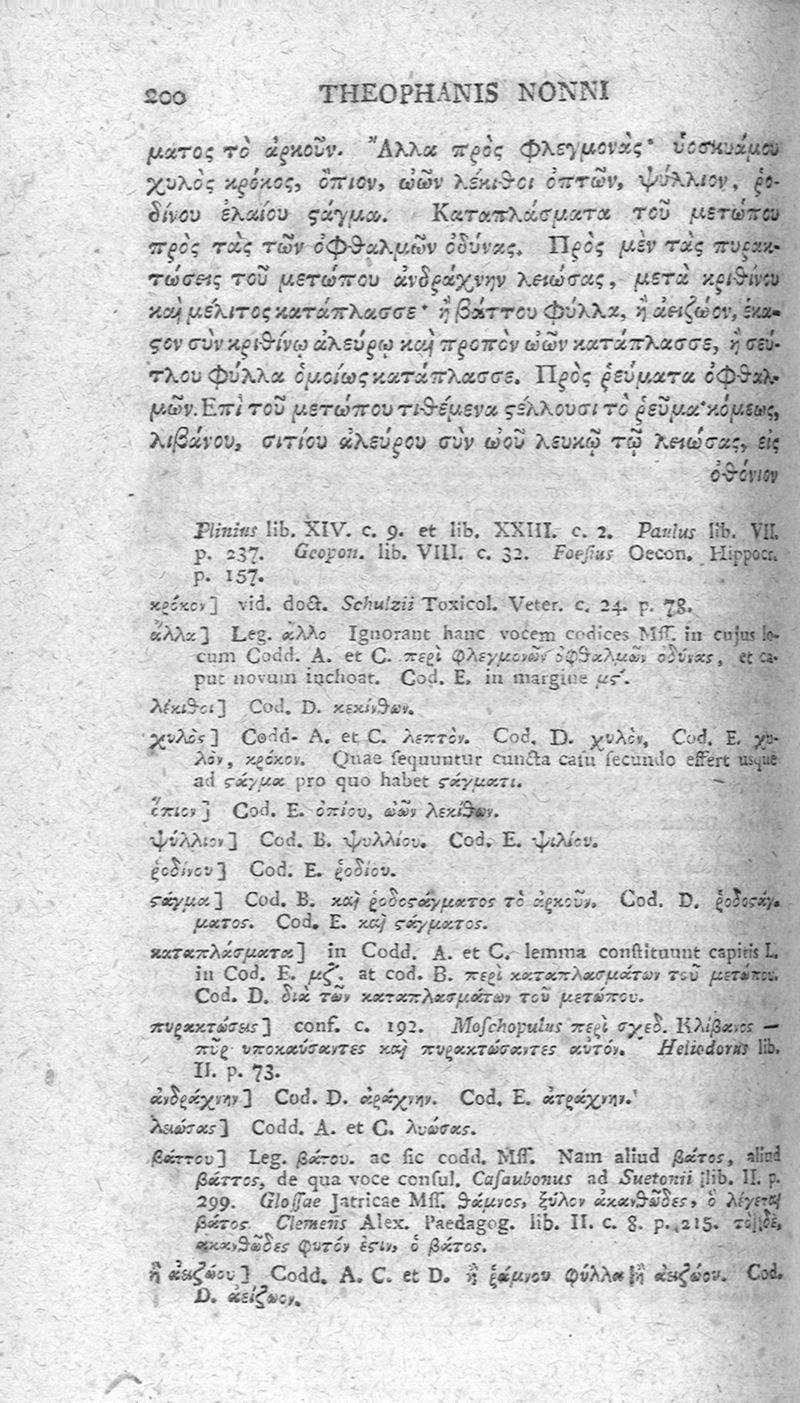 200 THEOPHANIS NONNI
ματος τὸ ἀρκοῦν. Ἄλλα πρὸς φλεγμονάς· ὑοσκυάμου
χυλὸς κρόκος, ὄπιον, ὠῶν λέκιθοι ὀπτῶν, ψύλλιον, ῥο-
δίνου ἐλαίου ϛάγμα. Καταπλάσματα τοῦ μετώπου
πρὸς τὰς τῶν ὀφθαλμῶν ὀδύνας. Πρὸς μὲν τὰς πυρακ-
τώσεις τοῦ μετώπου ἀνδράχνην λειώσας, μετὰ κριθίνου
καὶ μέλιτος κατάπλασσε· ἢ βάττου φύλλα, ἢ ἀειζώον, ἑκα-
ϛον σὺν κριθίνῳ ἀλεύρῳ καὶ προπὸν ὠῶν κατάπλασσε, ἢ σεύ-
τλου φύλλα ὁμοίως κατάπλασσε. Πρὸς ῥεύματα ὀφθαλ-
μῶν. Ἐπὶ τοῦ μετώπου τιθέμενα ϛέλλουσι τὸ ῥεῦμα· κόμεως,
λιβάνου, σιτίου ἀλεύρου σὺν ὠοῦ λευκῷ τῷ λειώσας, εἰς
ὀθόνιον
Plinius lib. XIV. c. 9. et lib. XXIII. c. 2. Paulus lib. VII.
p. 237. Geopon. lib. VIII. c. 32. Foeſius Oecon. Hippocr.
p. 157.
κρόκον] vid. doct. Schulzii Toxicol. Veter. c. 24. p. 78.
ἄλλα] Leg. ἄλλο Ignorant hanc vocem codices Mſſ. in cujus lo-
cum Codd. A. et C. περὶ φλεγμονῶν ὀφθαλμῶν ὀδύνας, et ca-
put novum inchoat. Cod. E. in margine μϛ′.
λέκιθοι] Cod. D. κεκίνθων.
χυλὸς] Codd. A. et C. λεπτόν. Cod. D. χυλὸν, Cod. E. χυ-
λὸν, κρόκον. Quae ſequuntur cuncta caſu ſecundo effert usque
ad ϛάγμα pro quo habet ϛάγματι.
ὄπιον] Cod. E. ὀπίου, ὠῶν λεκίθων.
ψύλλιον] Cod. B. ψυλλίου. Cod. E. ψιλίου.
ῥοδίνου] Cod. E. ῥοδίου.
ϛάγμα] Cod. B. καὶ ῥοδοϛάγματος τὸ ἀρκοῦν. Cod. D. ῥοδοϛάγ-
ματος. Cod. E. καὶ ϛάγματος.
καταπλάσματα] in Codd. A. et C. lemma conſtituunt capitis L.
in Cod. E. μζ′. at cod. B. περὶ καταπλασμάτων τοῦ μετώπου.
Cod. D. διὰ τῶν καταπλασμάτων τοῦ μετώπου.
πυρακτώσεις] conf. c. 192. Moſchopulus περὶ σχεδ. Κλίβανος —
πῦρ ὑποκαύσαντες καὶ πυρακτώσαντες αὐτόν. Heliodorus lib.
II. p. 73.
ἀνδράχνην] Cod. D. ἀράχνην. Cod. E. ἀτράχνην.
λειώσας] Codd. A. et C. λυώσας.
βάττου] Leg. βάτου. ac ſic codd. Mſſ. Nam aliud βάτος, aliud
βάττος, de qua voce conſul. Caſaubonus ad Suetonii lib. II. p.
299. Gloſſae Jatricae Mſſ. θάμνος, ξύλον ἀκανθῶδες, ὁ λέγεται
βάτος. Clemens Alex. Paedagog. lib. II. c. 8. p. 215. τὸ δὲ,
ἀκανθῶδες φυτόν ἐϛιν, ὁ βάτος.
ἢ ἀειζώου] Codd. A. C. et D. ἢ ῥάμνου φύλλα ἢ ἀειζώου. Cod.
D. ἀείζωον.